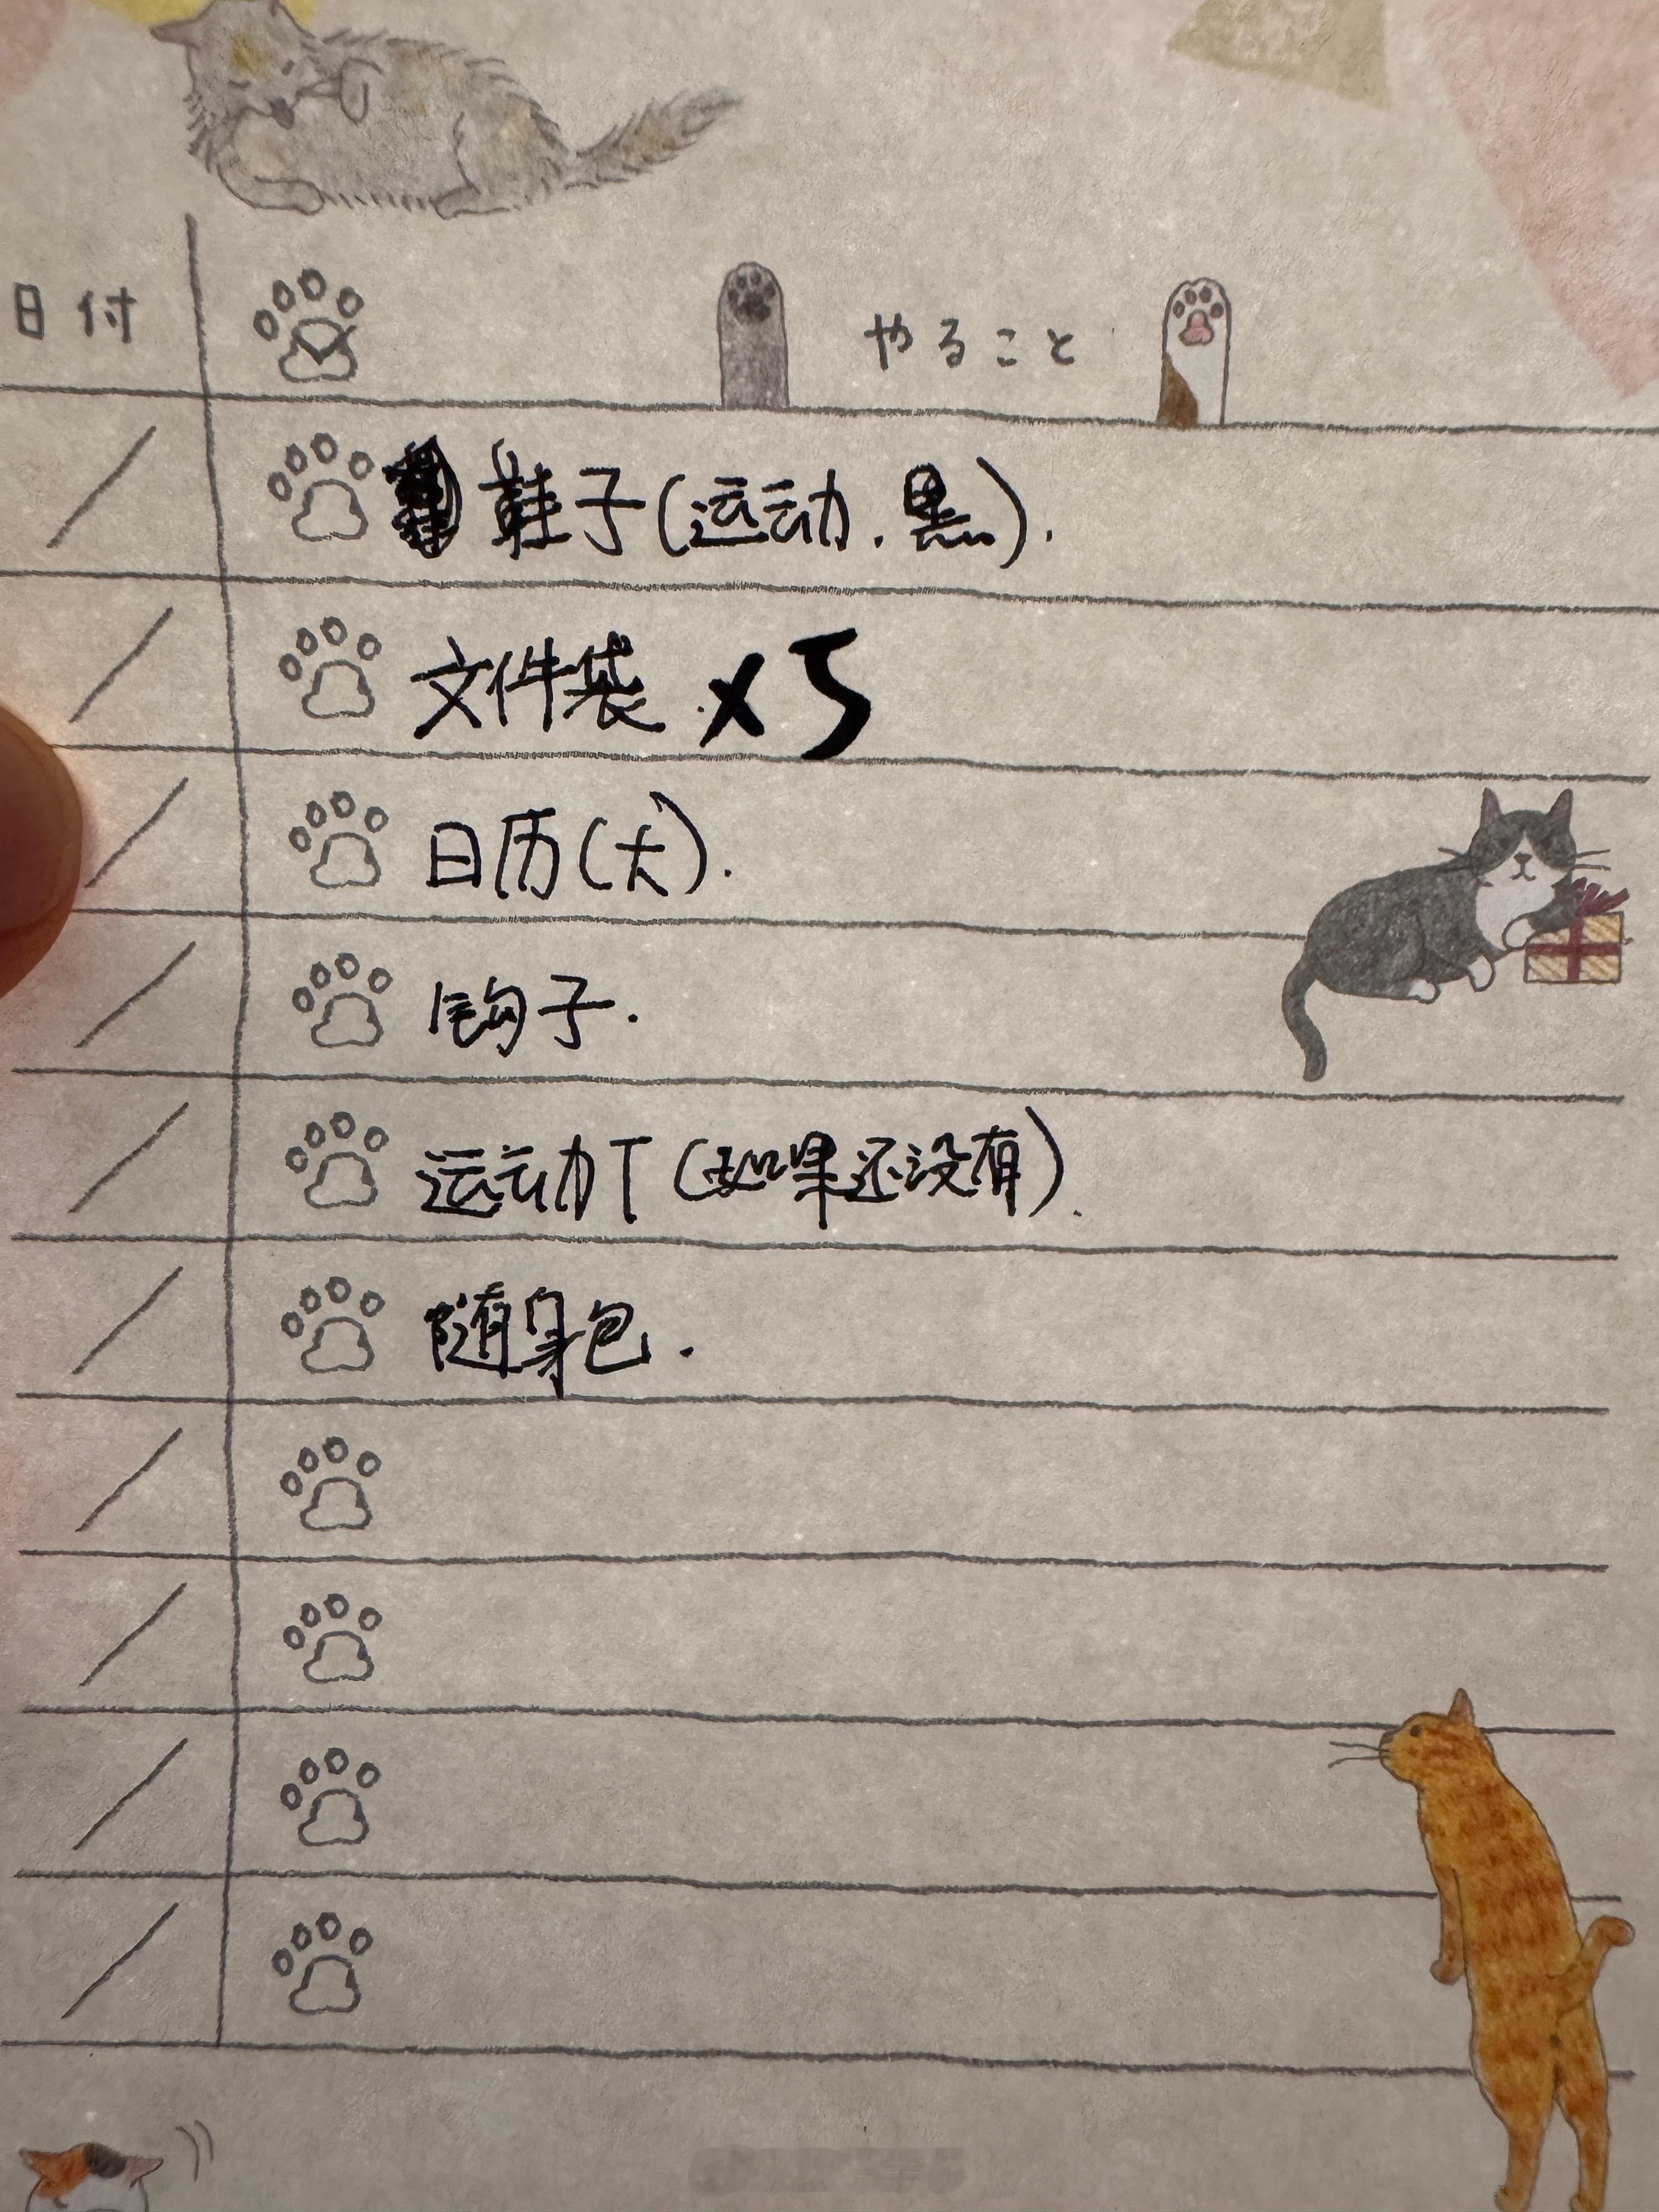 日付 やること
鞋子(运动.黑).
文件袋 ×5
日历(大).
钩子.
运动T(如果还没有).
随身包.